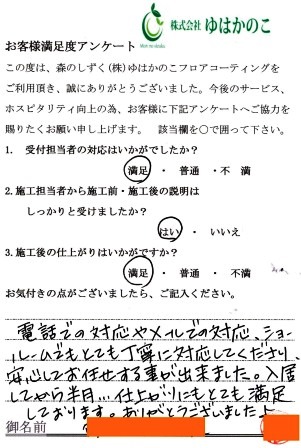 株式会社 ゆはかのこ
お客様満足度アンケート
この度は、森のしずく(株)ゆはかのこフロアコーティングを
ご利用頂き、誠にありがとうございました。今後のサービス、
ホスピタリティ向上の為、お客様に下記アンケートへご協力を
賜りたくお願い申し上げます。 該当欄を○で囲って下さい。
1. 受付担当者の対応はいかがでしたか?
満足 ・ 普通 ・不 満
2.施工担当者から施工前・施工後の説明は
しっかりと受けましたか?
はい ・ いいえ
3.施工後の仕上がりはいかがですか?
満足 ・ 普通 ・ 不満
お気付きの点がございましたら、ご記入ください。
電話での対応やメールでの対応、ショー
ルームでもとても丁寧に対応してくださり、
安心してお任せする事が出来ました。入居
してから半月…仕上がりにもとても満足
しております。ありがとうございました。
御名前